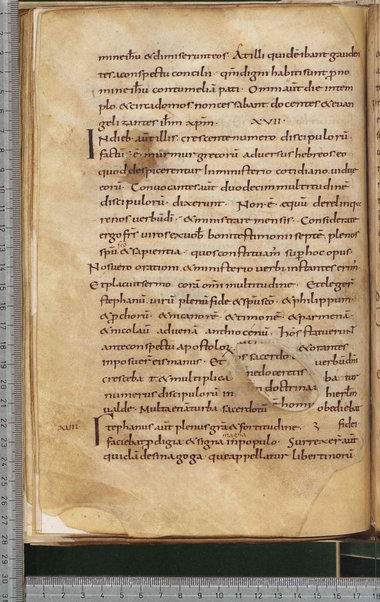 mineihu & dimiser unt eos. At illi quidē ibant gauden
tes a conspectu concilii. qm̄ digni habiti sunt p no
mine ihu contumeliā pati. Omni aut die in tem
plo & circa domos non cessabant docentes & euan
gelizantes ihm xpm. XVII.
Indieb; aut illis crescente numero discipulorū
factū ē murmur grecorū aduersus hebreos eo
quod despicerentur in ministerio cotidiano uidue
eorū. Conuocantes aut duodecim multitudinē
discipulorū dixerunt. Non ē equū derelinque
re nos uerbū dī & ministrare mensis. Considerate
ergo frs uiros ex uob boni testimonii septē plenos
spu sco & sapientia. quos constituam sup hoc opus.
Nos uero orationi & ministerio uerbi instantes erim;
Et placuit sermo corā omi multitudine. Et elegert
stephanū uirū plenū fide & spu sco. & philippum
& pchorū & nicanorē & timonē & parmenā
& nicolaū aduenā anthiocenū. Hos statuerūt
ante conspectū apostolor & orantes
inposuert eis manus. Et os sacerdo uerbū dni
crescebat & multiplica medocetis ba tur
numerus discipulorū in in doctrina hierlm
ualde. Multa etiā turba sacerdotū homi obediebat
XVIII Stephanus aut plenus gra & fortitudine. fidei
faciebat pdigia & signa magna in populo. Surrexer aut
quidā de sinagoga que appellatur libertinorū